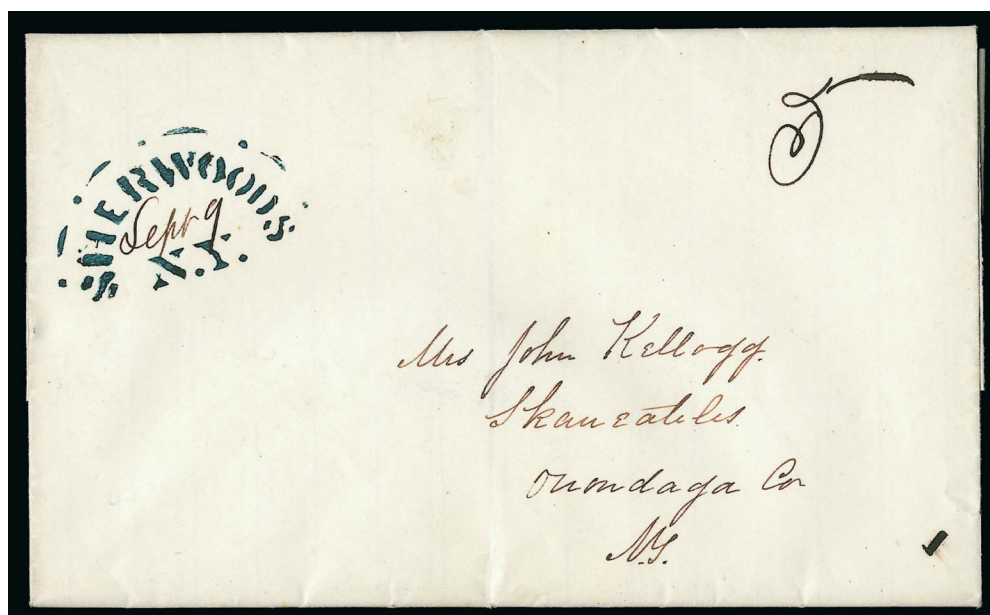 SHERWOOD'S
Sept 9
N.Y.
5
Mrs John Kellogg.
Skaneateles
Onondaga Co
N.Y.